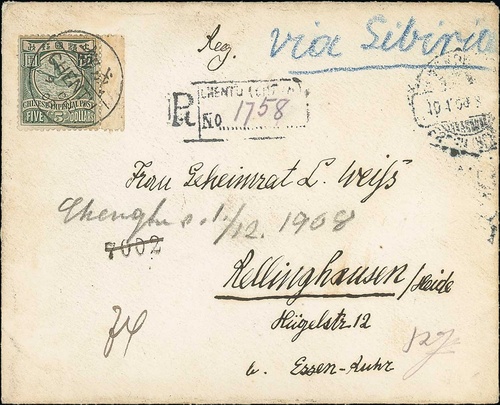 Reg.
via Sibirie
CHENTU
R No 1758
Frau Geheimrat L. Weiß
1/12. 1908
7002
Rellinghausen/Heide
Hügelstr. 12
b. Essen-Ruhr
CHINESE IMPERIAL POST
FIVE 5 DOLLARS